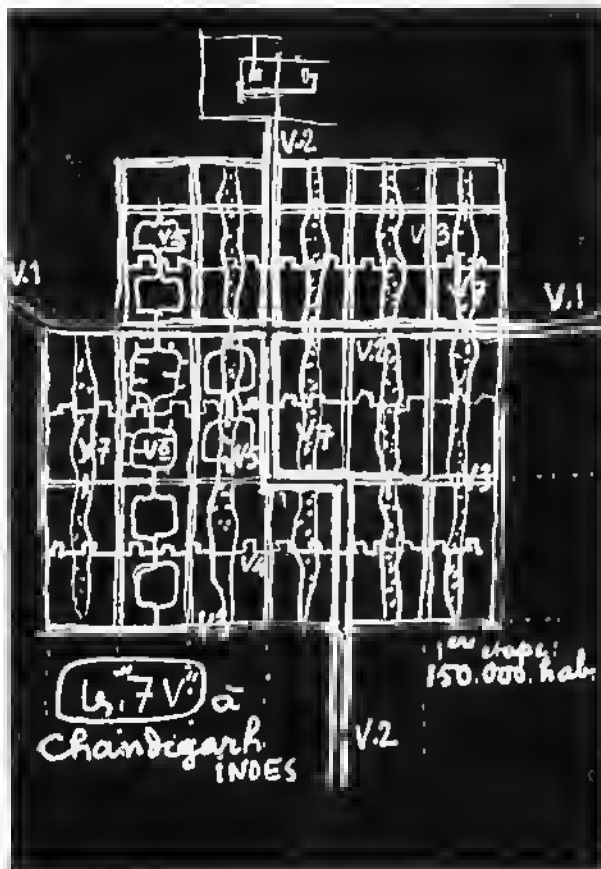 V.2
V5
V3
V.1
V.7
V.1
V4
V.7
V6
V5
V.7
V3
V4
V3
1er étape:
150.000. hab.
Les "7 V" à
Chandigarh
INDES
V.2